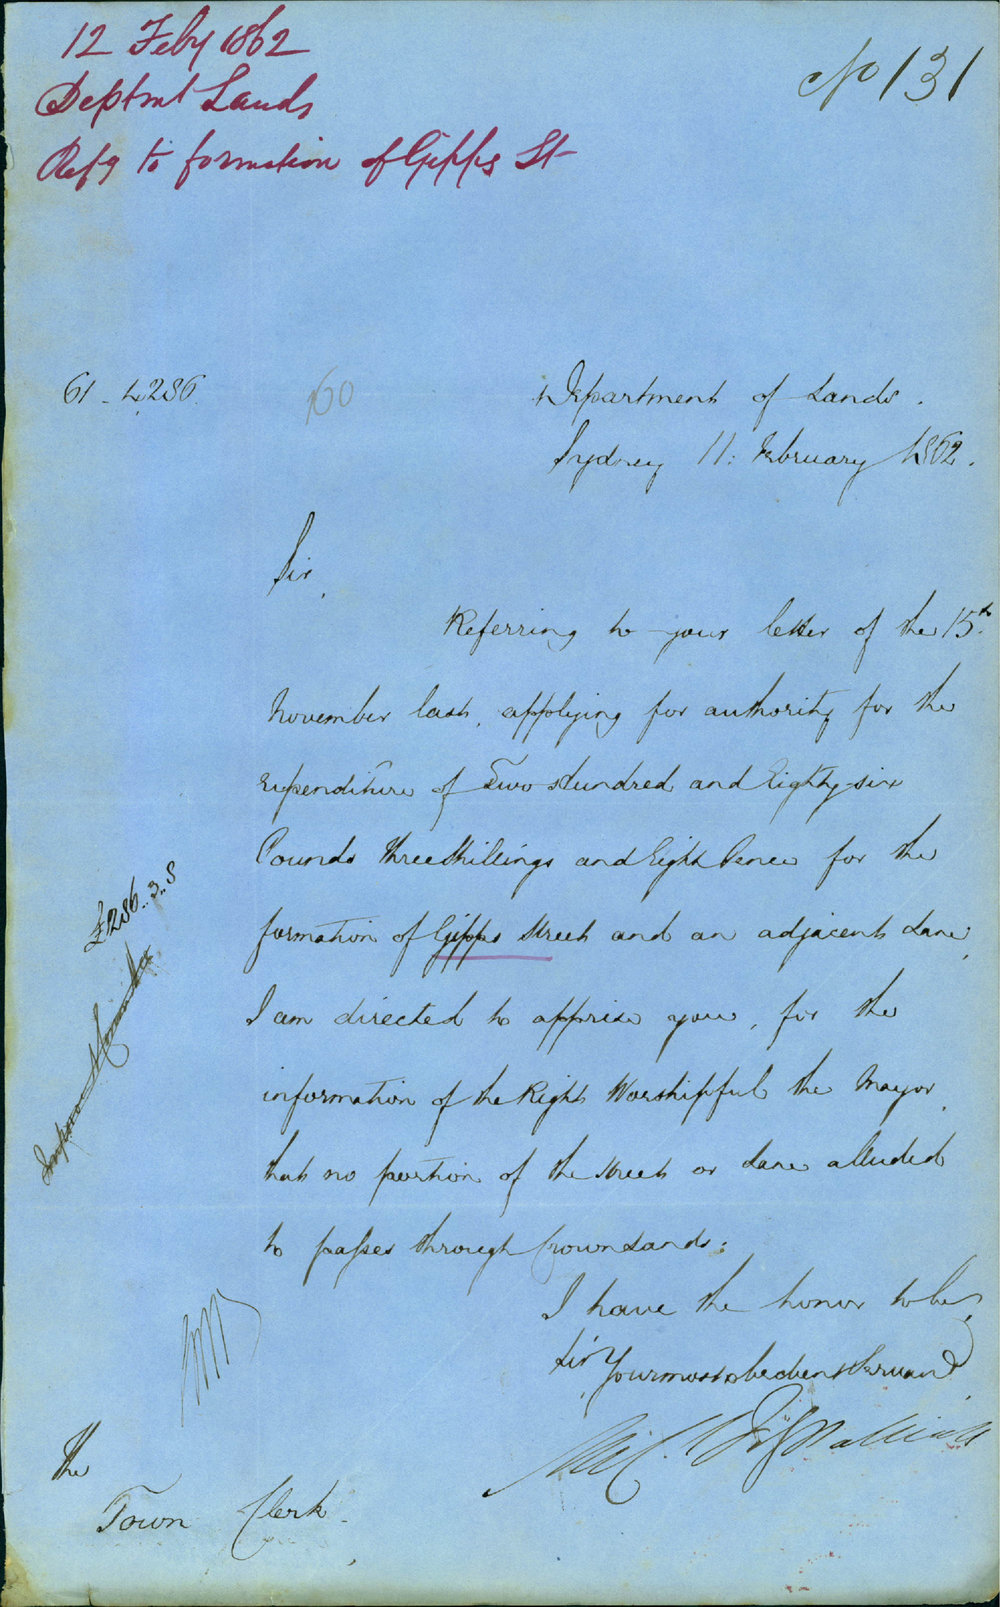 12 Feby 1862
Deptmt Lands
Refg to formation of Gipps St
No 131
61-4286
60
Department of Lands.
Sydney 11: February 1862.
Sir,
Referring to your letter of the 15th
November last, applying for authority for the
expenditure of Two Hundred and Eighty six
Pounds three Shillings and Eight Pence for the
formation of Gipps Street and an adjacent Lane,
I am directed to apprise you, for the
information of the Right Worshipful the Mayor,
that no portion of the Street or Lane alluded
to passes through Crown Lands.
£286..3..8
Improvt Committee
I have the honor to be,
Sir,
Your most obedient Servant
Mic. Fitzpatrick
The
Town Clerk.